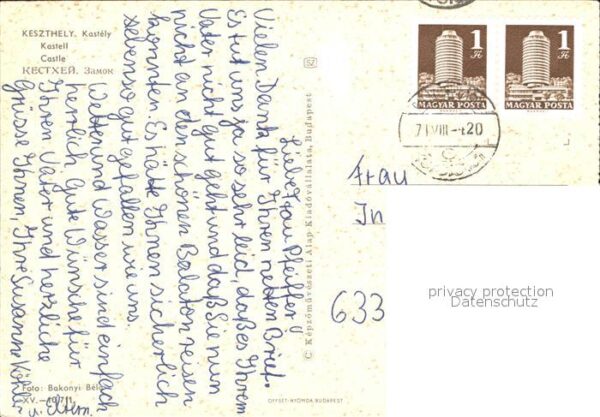 KESZTHELY. Kastély
Kastell
Castle
КЕСТХЕЙ. Замок
Liebe Frau Pfeiffer,
Vielen Dank für Ihren netten Brief.
Es tut uns ja so sehr leid, daß es Ihrem
Vater nicht gut geht und daß Sie nun
nicht an den schönen Balaton reisen
konnten. Es hätte Ihnen sicherlich
ebenso gut gefallen wie uns.
Wetter und Wasser sind einfach
herrlich. Gute Wünsche für
Ihren Vater und herzliche
Grüsse Ihnen, Ihre Susanne Köhler
u. Eltern.
Foto: Bakonyi Béla
XV.
SZ
© Képzőművészeti Alap Kiadóvállalata, Budapest
OFFSET-NYOMDA BUDAPEST
1 Ft
MAGYAR POSTA
1 Ft
MAGYAR POSTA
71 VIII 20
Frau
In
633
privacy protection
Datenschutz